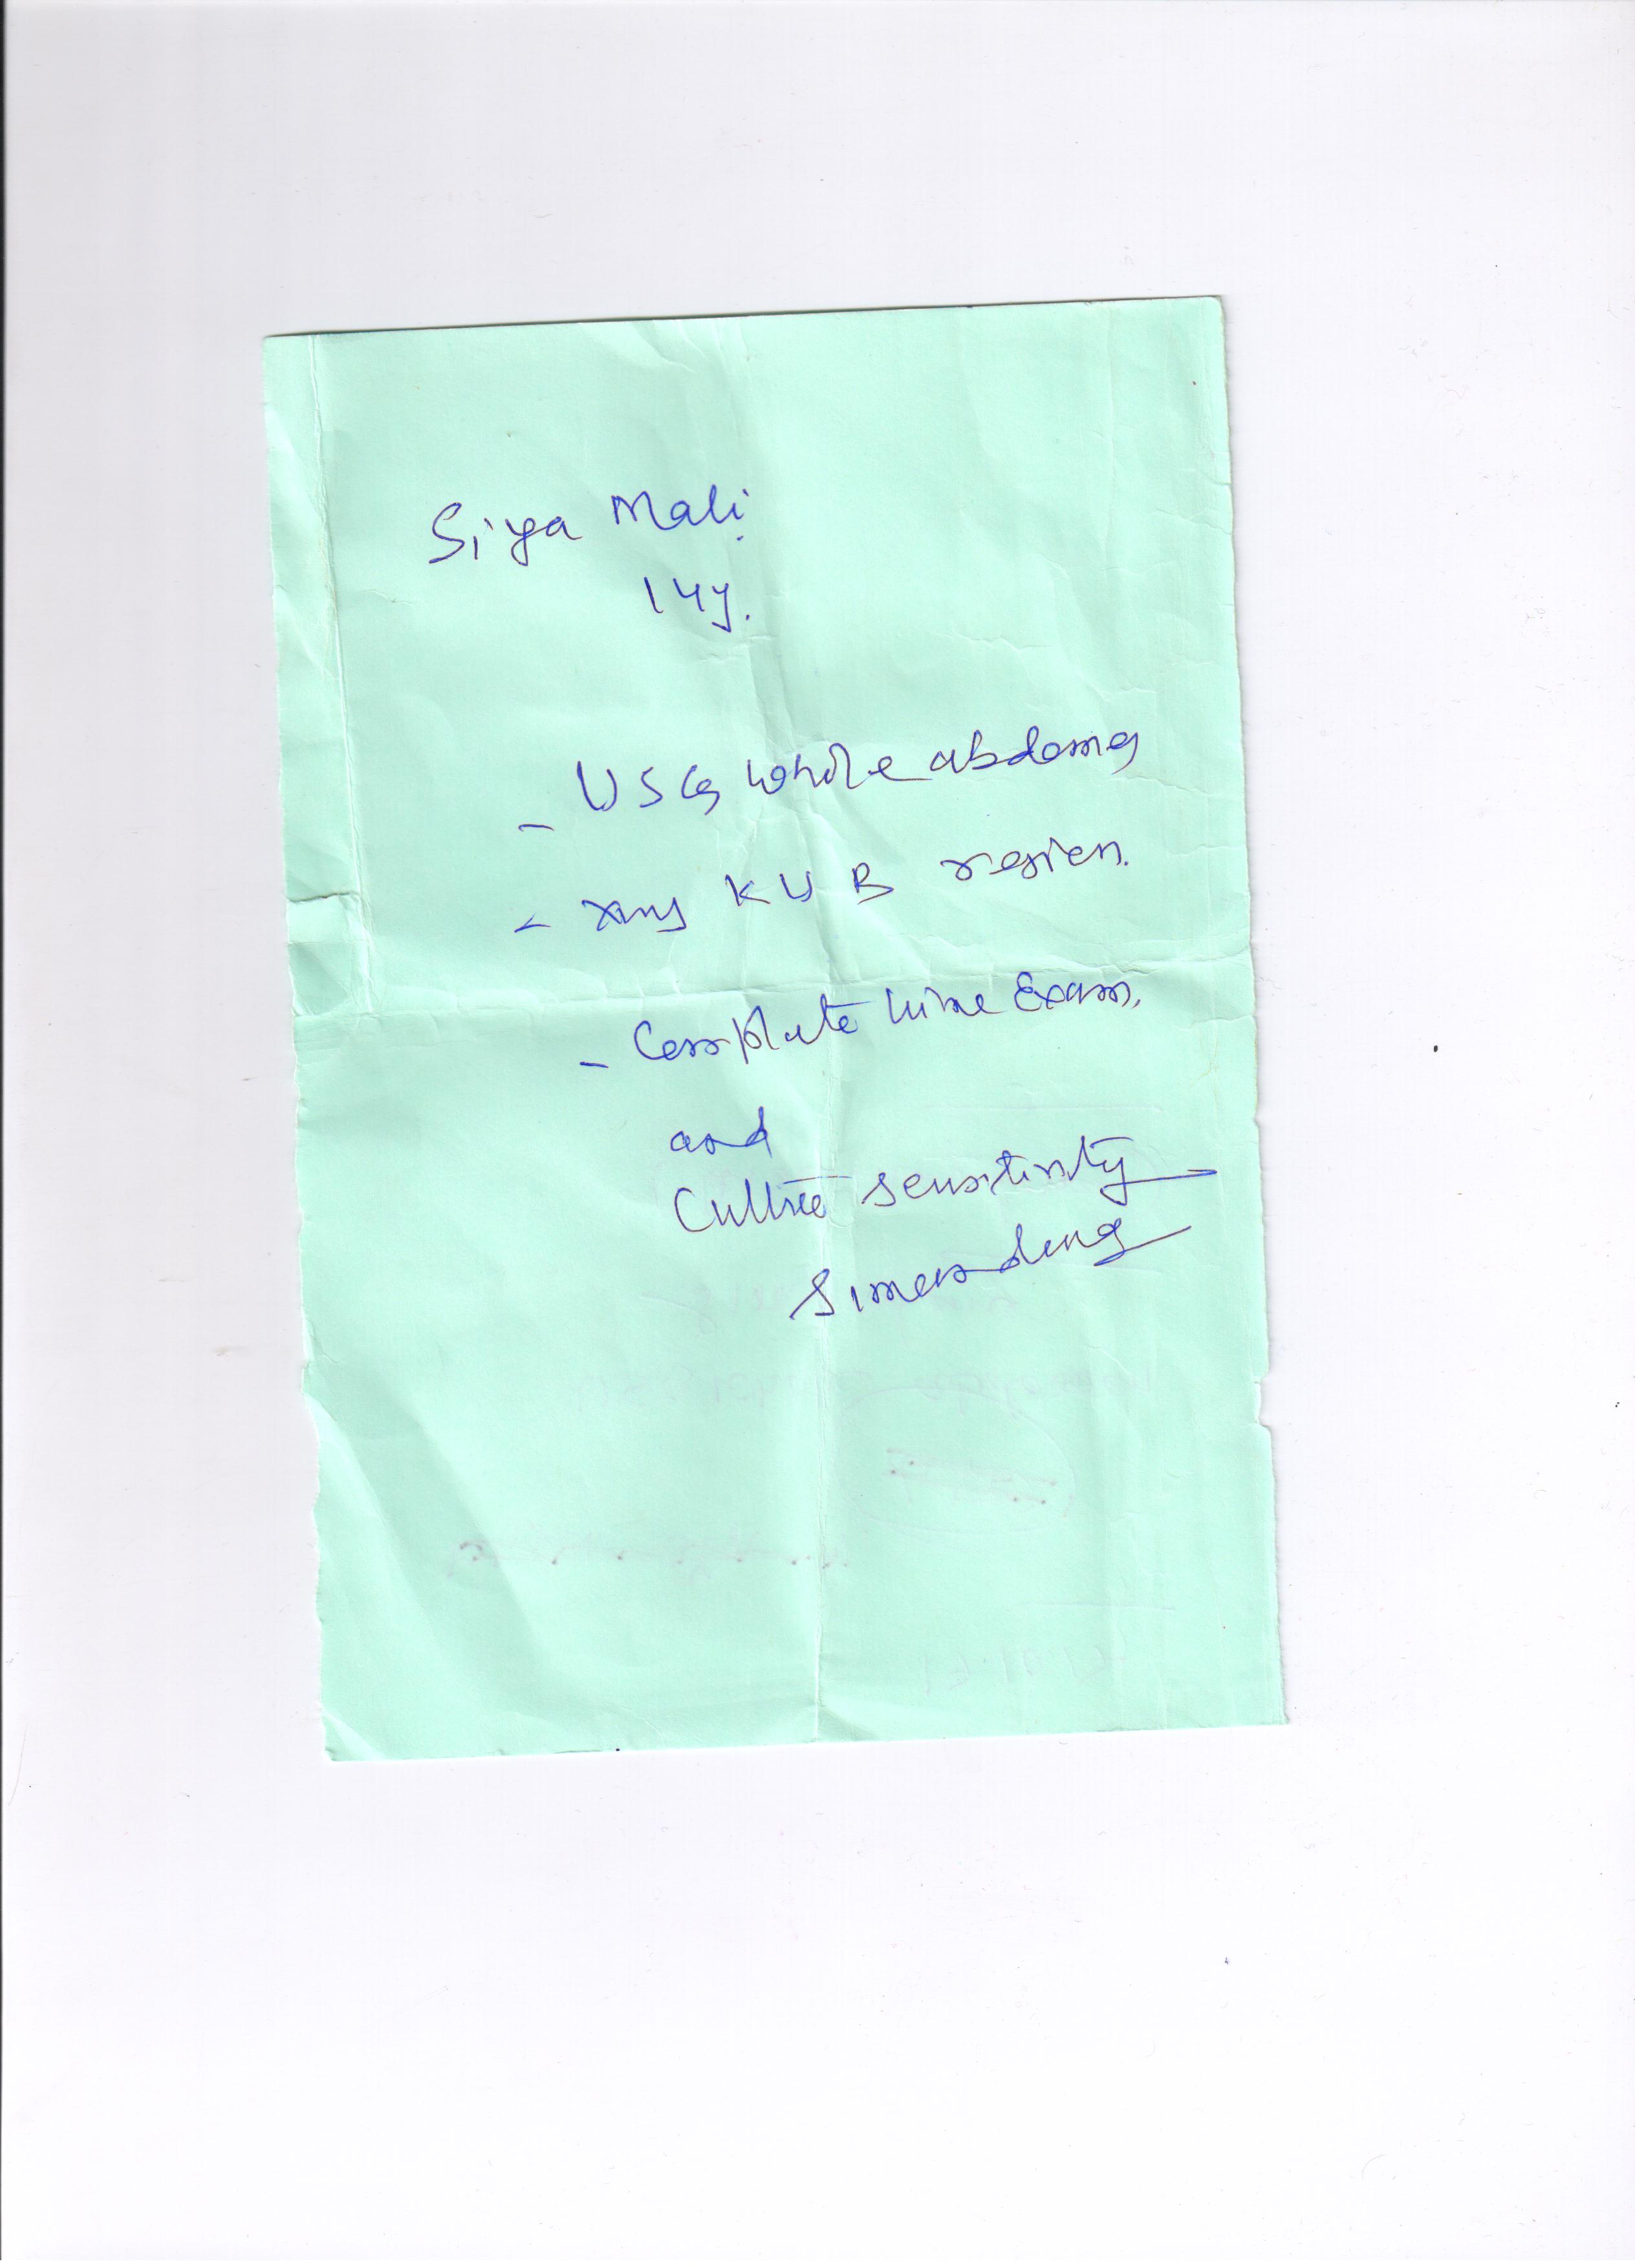 Siya Mali
14y.
- USG whole abdomen
- xray KUB region.
- Complete urine Exam.
and
Culture sensitivity